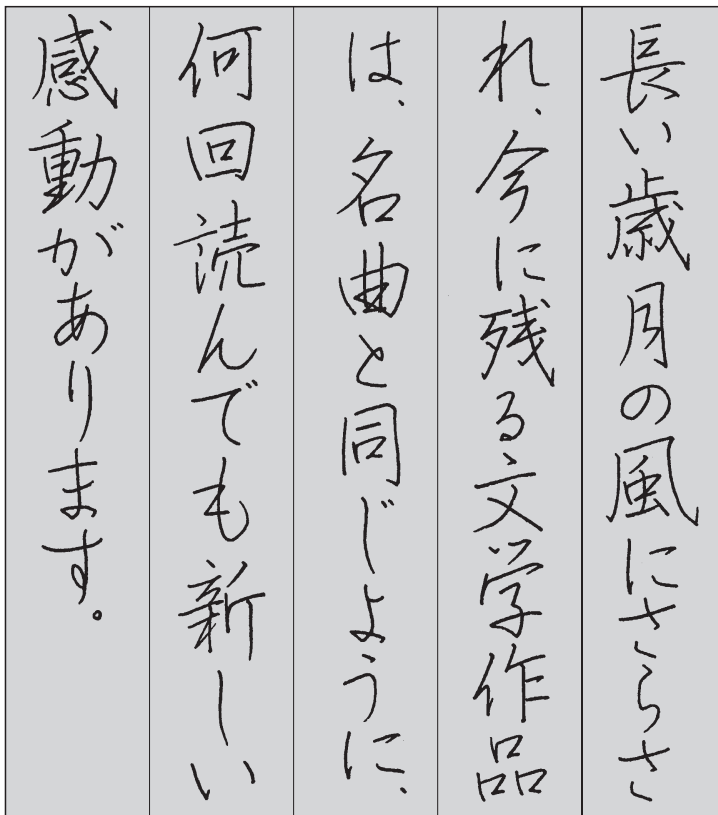 長い歳月の風にさらさ
れ、今に残る文学作品
は、名曲と同じように、
何回読んでも新しい
感動があります。